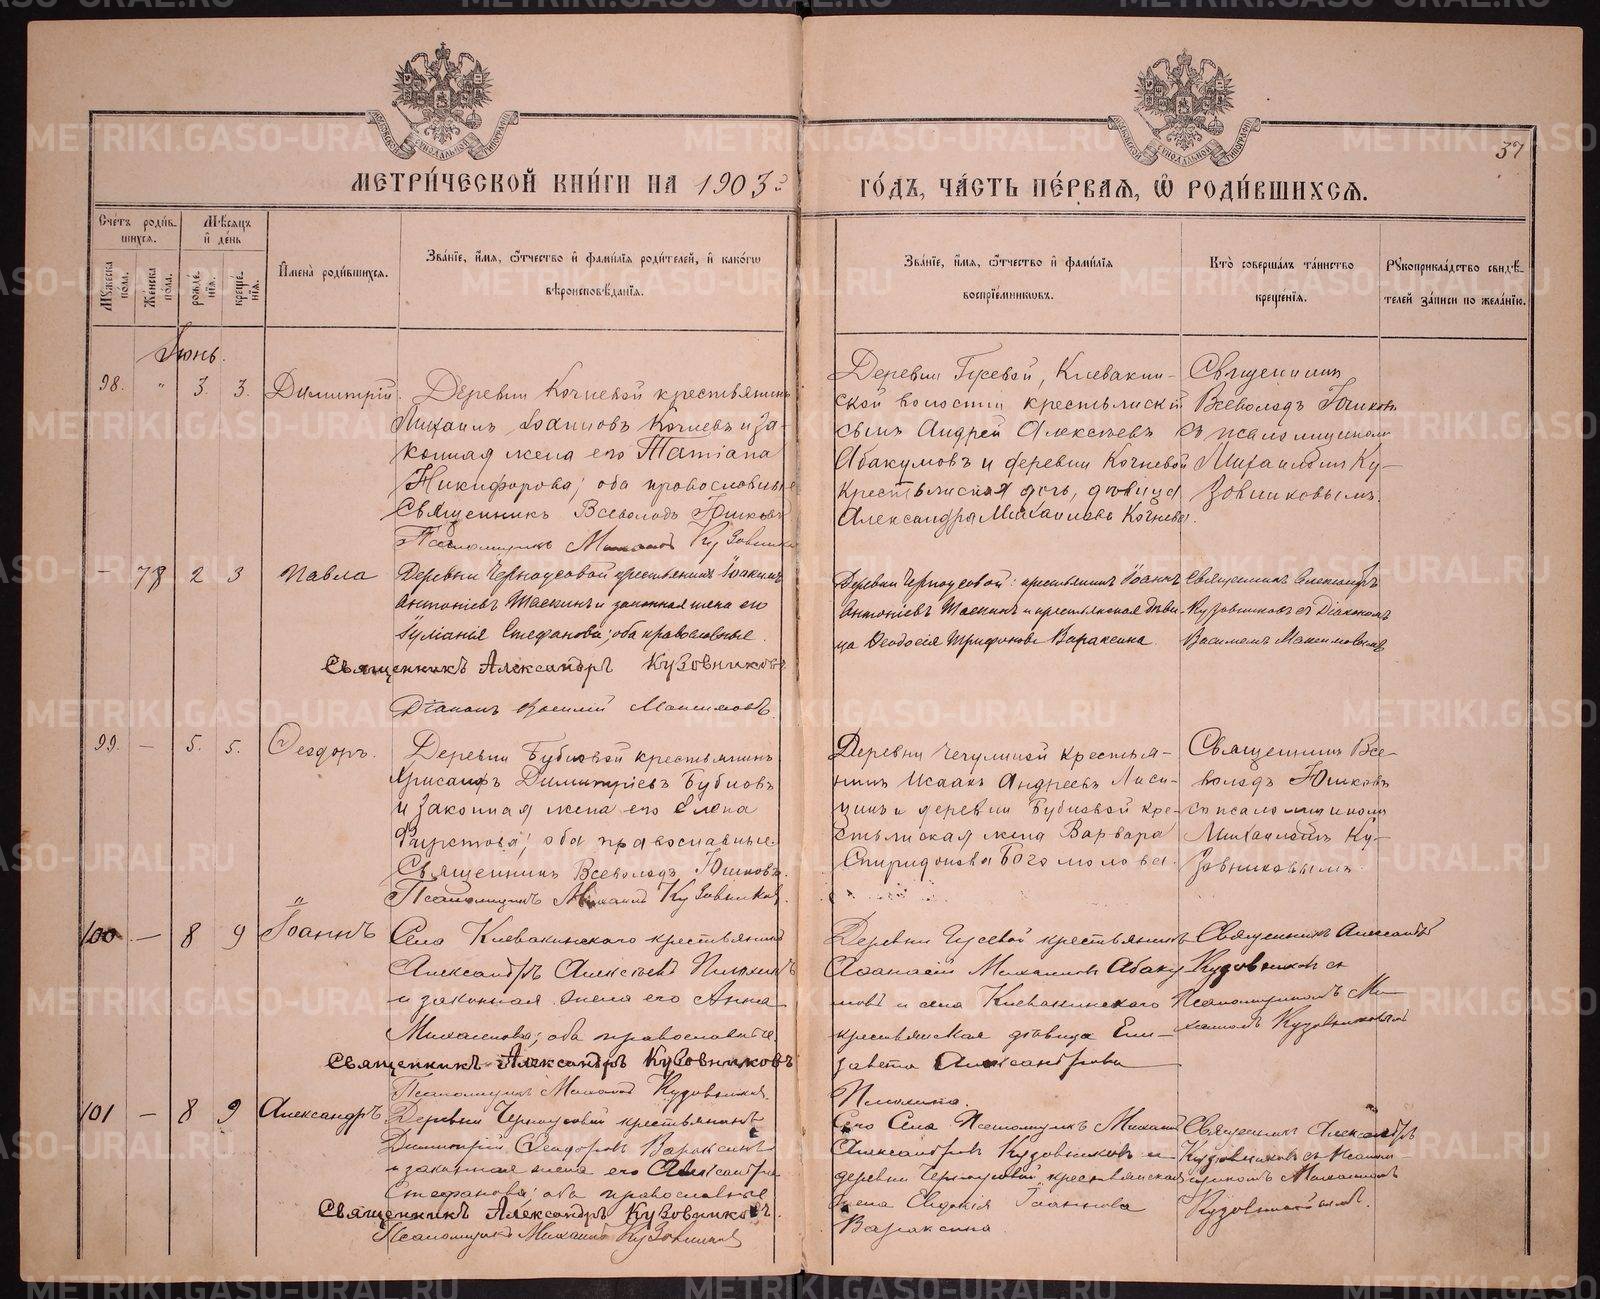 37
МЕТРИ́ЧЕСКОЙ КНИ́ГИ НА 1903й
ГО́ДЪ, ЧА́СТЬ ПЕ́РВАЯ, Ѡ҆ РОДИ́ВШИХСЯ.
Сче́тъ роди́в-
шихся.
Мѣ́сяцъ
и҆ де́нь
Му́жеска по́ла.
Же́нска по́ла.
рожде́нїя.
креще́нїя.
И҆мена̀ роди́вшихся.
Зва́нїе, и҆́мя, ѻ҆́тчество и҆ фами́лїя роди́телей, и҆ како́гѡ
вѣроисповѣ́данїя.
Зва́нїе, и҆́мя, ѻ҆́тчество и҆ фами́лїя
воспрїе́мниковъ.
Кто̀ соверша́лъ та́инство
креще́нїя.
Рꙋкоприкла́дство свидѣ́-
телей за́писи по жела́нїю.
Іюнь.
98. " 3. 3.
Димитрій.
Деревни Кочневой крестьянинъ
Михаилъ Іоанновъ Кочневъ и за-
конная жена его Татіана
Никифорова; оба православные
Священникъ Всеволодъ Юшковъ
Псаломщикъ Михаилъ Кузовников
Деревни Гусевой, Клевакин-
ской волости крестьянскій
сынъ Андрей Алексѣевъ
Абакумовъ и деревни Кочневой
крестьянская дочь, дѣвица
Александра Михаилова Кочнева.
Священникъ
Всеволодъ Юшковъ
съ псаломщикомъ
Михаиломъ Ку-
зовниковымъ.
– 78 2 3
Павла
Деревни Черноусовой крестьянинъ Іоакимъ
Антоніевъ Шаекинъ и законная жена его
Іуліанія Стефанова; оба православные.
Священникъ Александръ Кузовниковъ
Діаконъ Василій Максимовъ.
Деревни Черноусовой: крестьянинъ Іоаннъ
Антоніевъ Шаекинъ и крестьянская дѣви-
ца Ѳеодосія Трифонова Вараксина
Священникъ Александръ
Кузовниковъ съ Діакономъ
Василіемъ Максимовымъ
99. – 5. 5.
Ѳеодоръ.
Деревни Бубновой крестьянинъ
Хрисанфъ Димитріевъ Бубновъ
и законная жена его Елена
Фирстова; оба православные.
Священникъ Всеволодъ Юшковъ.
Псаломщикъ Михаилъ Кузовников.
Деревни Чечулиной крестья-
нинъ Исаакъ Андреевъ Лиси-
цинъ и деревни Бубновой кре-
стьянская жена Варвара
Спиридонова Богомолова.
Священникъ Все-
володъ Юшковъ
съ псаломщикомъ
Михаиломъ Ку-
зовниковымъ.
100 – 8 9
Іоаннъ
Села Клевакинского крестьянинъ
Александръ Алексѣевъ
и законная жена его Анна
Михаилова; оба православные.
Священникъ Александръ Кузовниковъ
Псаломщикъ Михаилъ Кузовников.
Деревни Гусевой крестьянинъ
Аѳанасій Михаиловъ Абаку-
мовъ и села Клевакинского
крестьянская дѣвица Ели-
завета Александрова
Священникъ Александръ
Кузовниковъ съ
Псаломщикомъ Ми-
хаиломъ Кузовниковымъ
101 – 8 9
Александръ
Деревни Черноусовой крестьянинъ
Димитрій Ѳеодоровъ Вараксинъ
и законная жена его Александра
Стефанова; оба православные
Священникъ Александръ Кузовниковъ.
Псаломщикъ Михаилъ Кузовников
Сего Села Псаломщикъ Михаилъ
Александровъ Кузовниковъ и
деревни Черноусовой, крестьянская
жена Евдокія Іоаннова
Вараксина.
Священникъ Александръ
Кузовниковъ съ Псалом-
щикомъ Михаиломъ
Кузовниковымъ.
METRIKI.GASO-URAL.RU